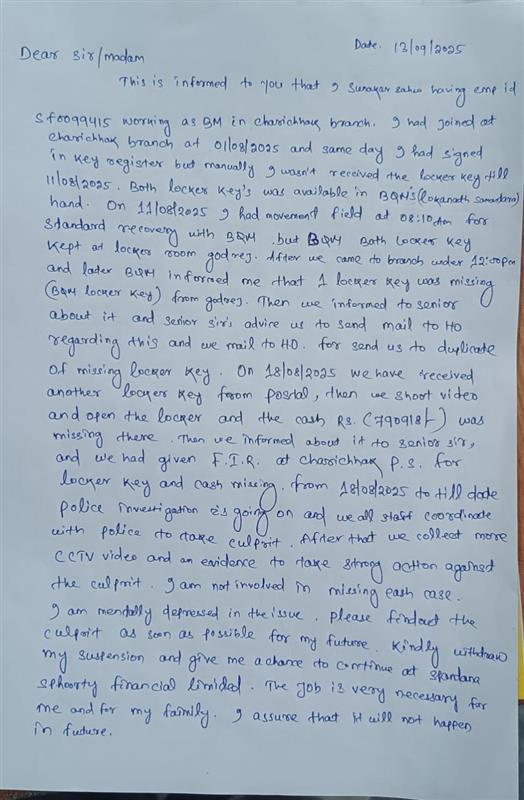 Date. 13/09/2025
Dear sir/madam
This is informed to you that I Sunakar sahu having emp id
Sf0099415 working as BM in charichhak branch. I had joined at
charichhak branch at 01/08/2025 and same day I had signed
in key register but manually I wasn't received the locker key till
11/08/2025. Both locker key's was available in BQM's (Lokanath samantara)
hand. On 11/08/2025 I had movement field at 08:10Am for
standard recovery with BQM. but BQM Both Locker key
kept at locker room godrej. After we came to branch under 12:00pm
and later BQM informed me that 1 locker key was missing
(BQM locker key) from godrej. Then we informed to senior
about it and senior sir's advice us to send mail to HO
regarding this and we mail to HO. for send us to duplicate
of missing locker key. On 18/08/2025 we have received
another locker key from postal, then we shoot video
and open the locker and the cash Rs. (790918/-) was
missing there. Then we informed about it to senior sir,
and we had given F.I.R. at charichhak P.S. for
locker key and cash missing. from 18/08/2025 to till date
police investigation is going on and we all staff coordinate
with police to take culprit. After that we collect more
CCTV video and an evidence to take strong action against
the culprit. I am not involved in missing cash case.
I am mentally depressed in the issue. please findout the
culprit as soon as possible for my future. Kindly withdraw
my suspension and give me a chance to continue at spandana
sphoorty financial limided. The job is very necessary for
me and for my faimily. I assume that it will not happen
in future.